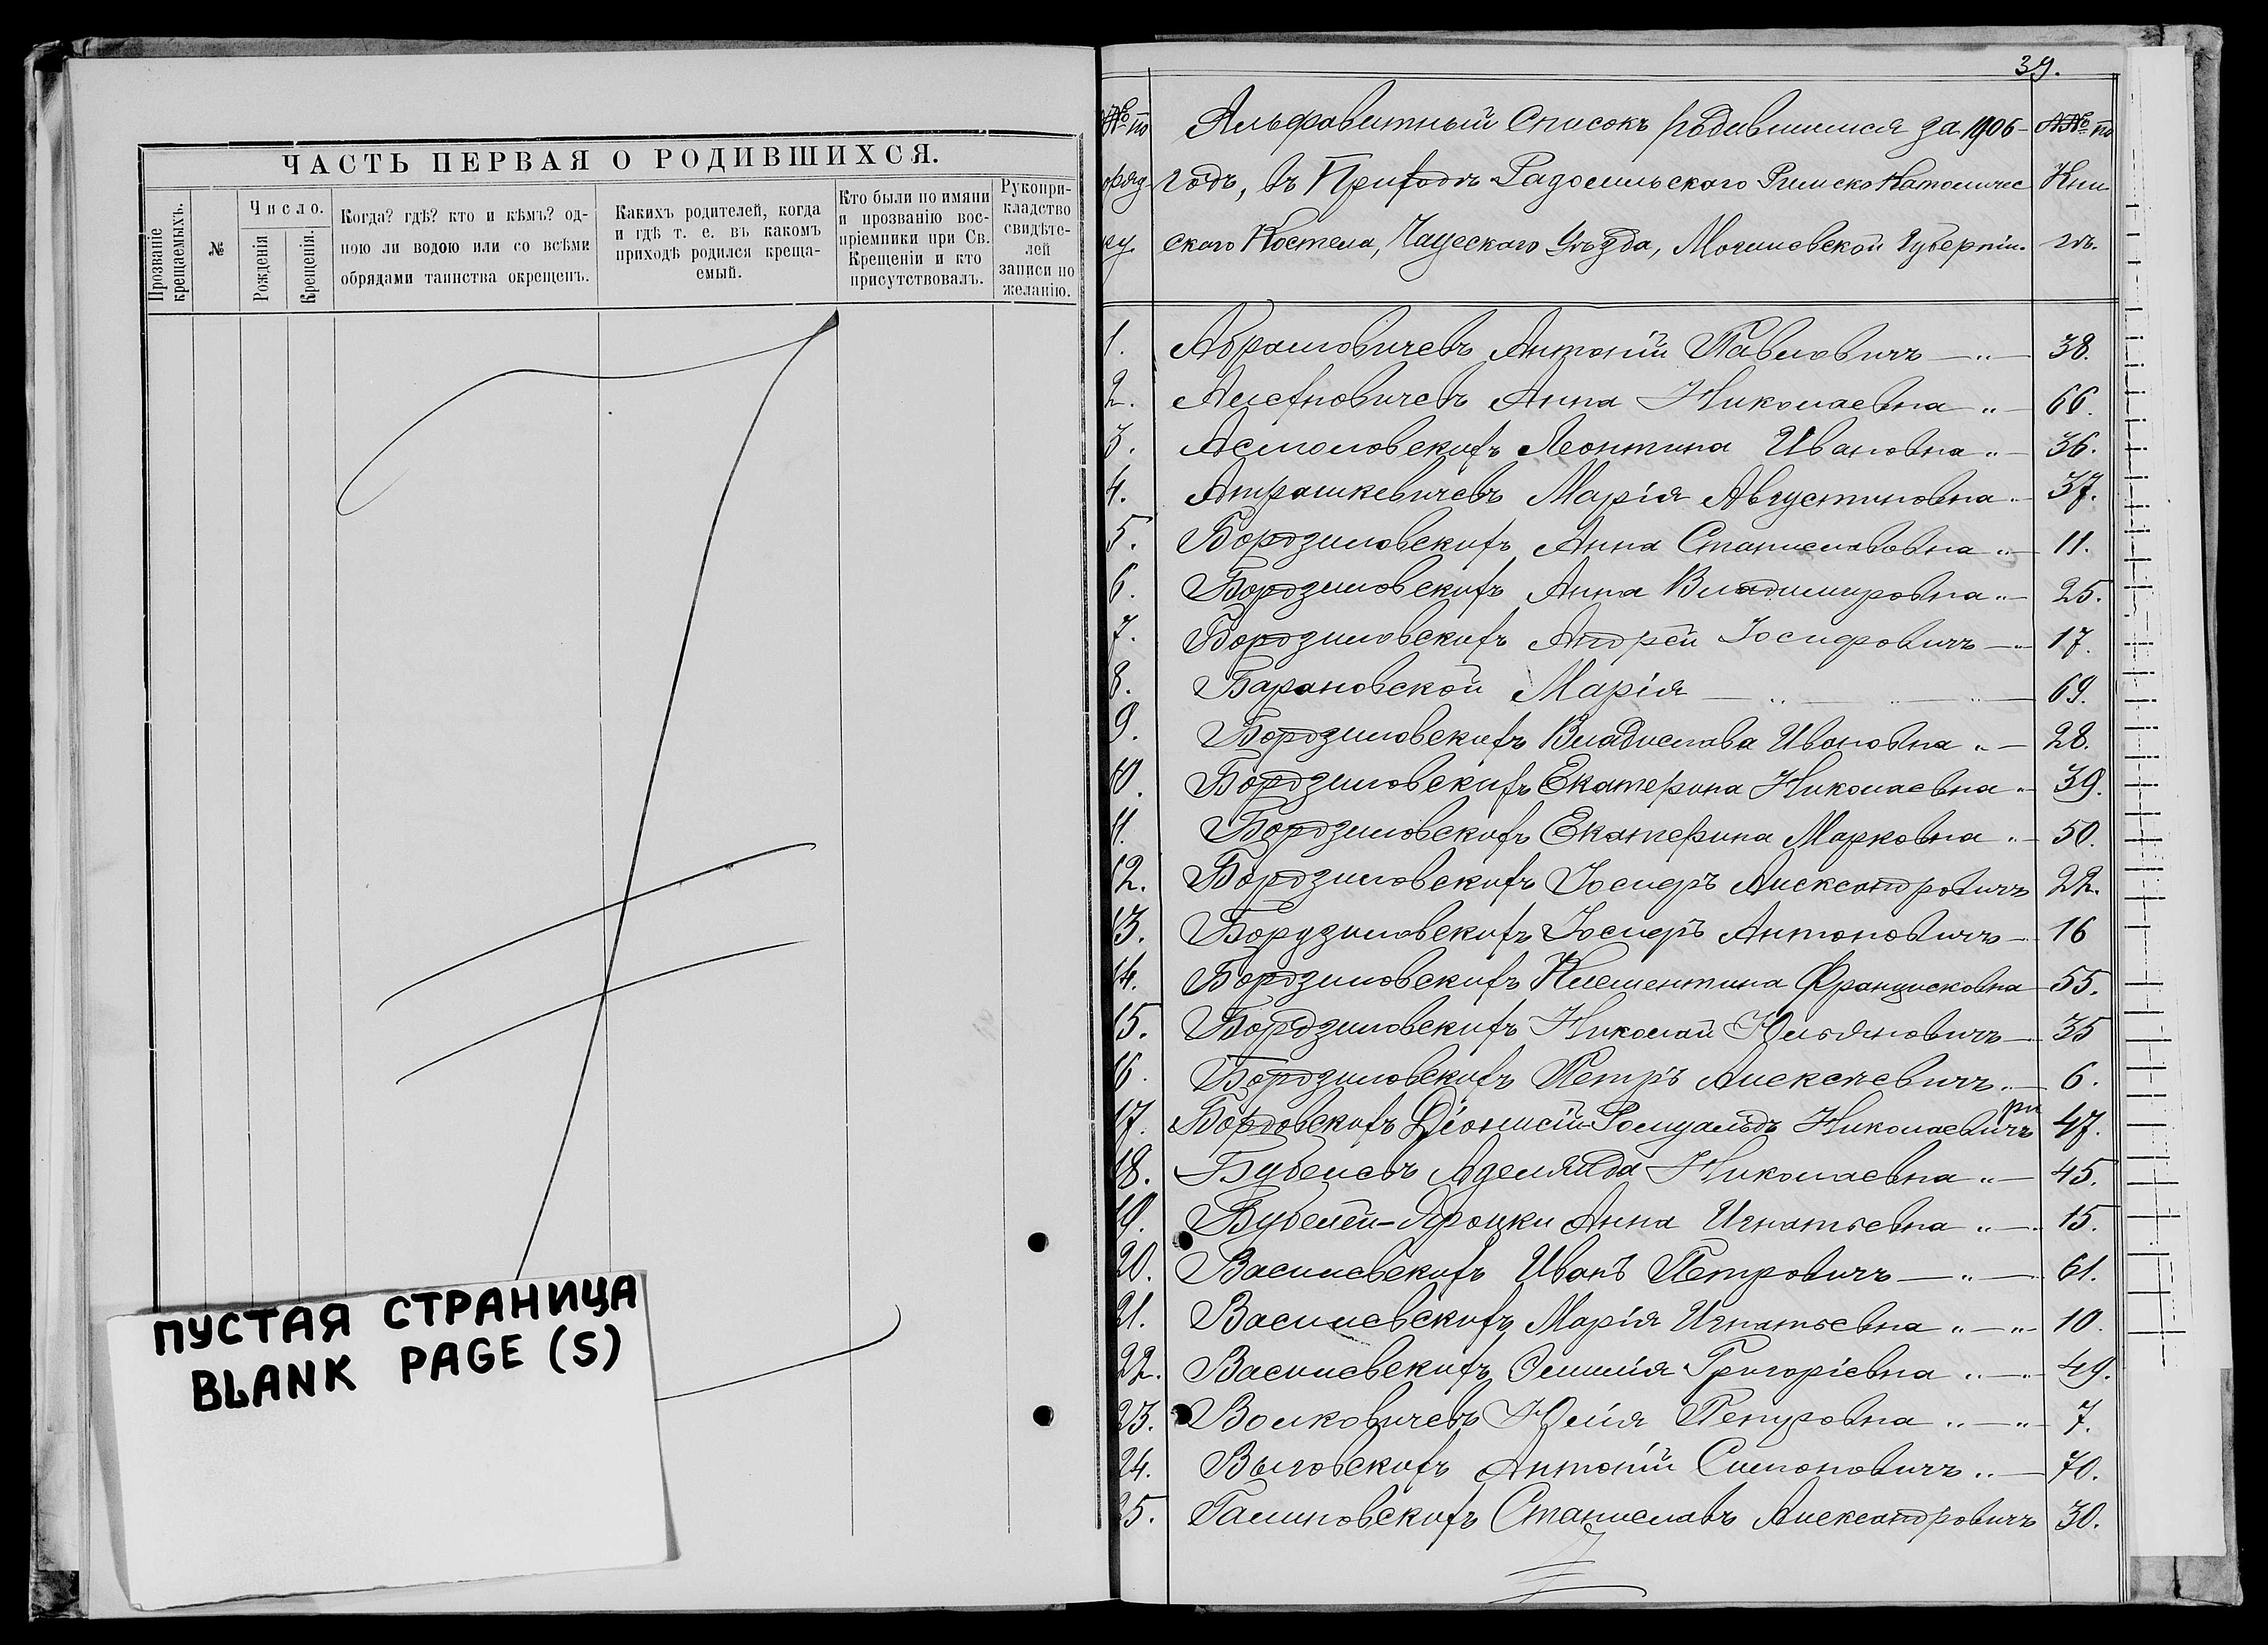 ЧАСТЬ ПЕРВАЯ О РОДИВШИХСЯ.
Прозваніе крещаемыхъ.
№
Число.
Рожденія
Крещенія.
Когда? гдѣ? кто и кѣмъ? од-
ною ли водою или со всѣми
обрядами таинства окрещенъ.
Какихъ родителей, когда
и гдѣ т. е. въ какомъ
приходѣ родился креща-
емый.
Кто были по имяни
и прозванію вос-
пріемники при Св.
Крещеніи и кто
присутствовалъ.
Рукопри-
кладство
свидѣте-
лей
записи по
желанію.
ПУСТАЯ СТРАНИЦА
BLANK PAGE (S)
39.
№ по Альфавитный Списокъ родившимися за 1906 №№ по
оряд годъ, въ Приходѣ Радомльского Римско Католичес Кни
ку. ского Костела, Чаусскаго Уѣзда, Могилевской Губерніи. гѣ.
1. Абрамовичевъ Антоній Павловичъ 38.
2. Алехновичевъ Анна Николаевна 66.
3. Асмоловскихъ Леонтина Ивановна 36.
4. Атрашкевичевъ Марія Августиновна 37.
5. Бордзиловскихъ Анна Станиславовна 11.
6. Бордзиловскихъ Анна Владимировна 25.
7. Бордзиловскихъ Андрей Іосифовичъ 17.
8. Барановской Марія 69.
9. Бордзиловскихъ Владислава Ивановна 28.
10. Бордзиловскихъ Екатерина Николаевна 39.
11. Бордзиловскихъ Екатерина Марковна 50.
12. Бордзиловскихъ Іосифъ Александровичъ 22.
13. Бордзиловскихъ Іосифъ Антоновичъ 16
14. Бордзиловскихъ Клементина Францисковна 55.
15. Бордзиловскихъ Николай Юльяновичъ 35
16. Бордзиловскихъ Петръ Алексѣевичъ 6.
17. Бордовскихъ Діонисій-Ромуальдъ Николаевичъ 47.
18. Бубелевъ Аделяида Николаевна 45.
19. Бубелей-Яроцки Анна Игнатьевна 15.
20. Василевскихъ Иванъ Петровичъ 61.
21. Василевскихъ Марія Игнатьевна 10.
22. Василевскихъ Эмилія Григоріевна 49.
23. Волковичевъ Юлія Петровна 7.
24. Выговскихъ Антоній Симоновичъ 70.
25. Галиновскихъ Станиславъ Александровичъ 30.